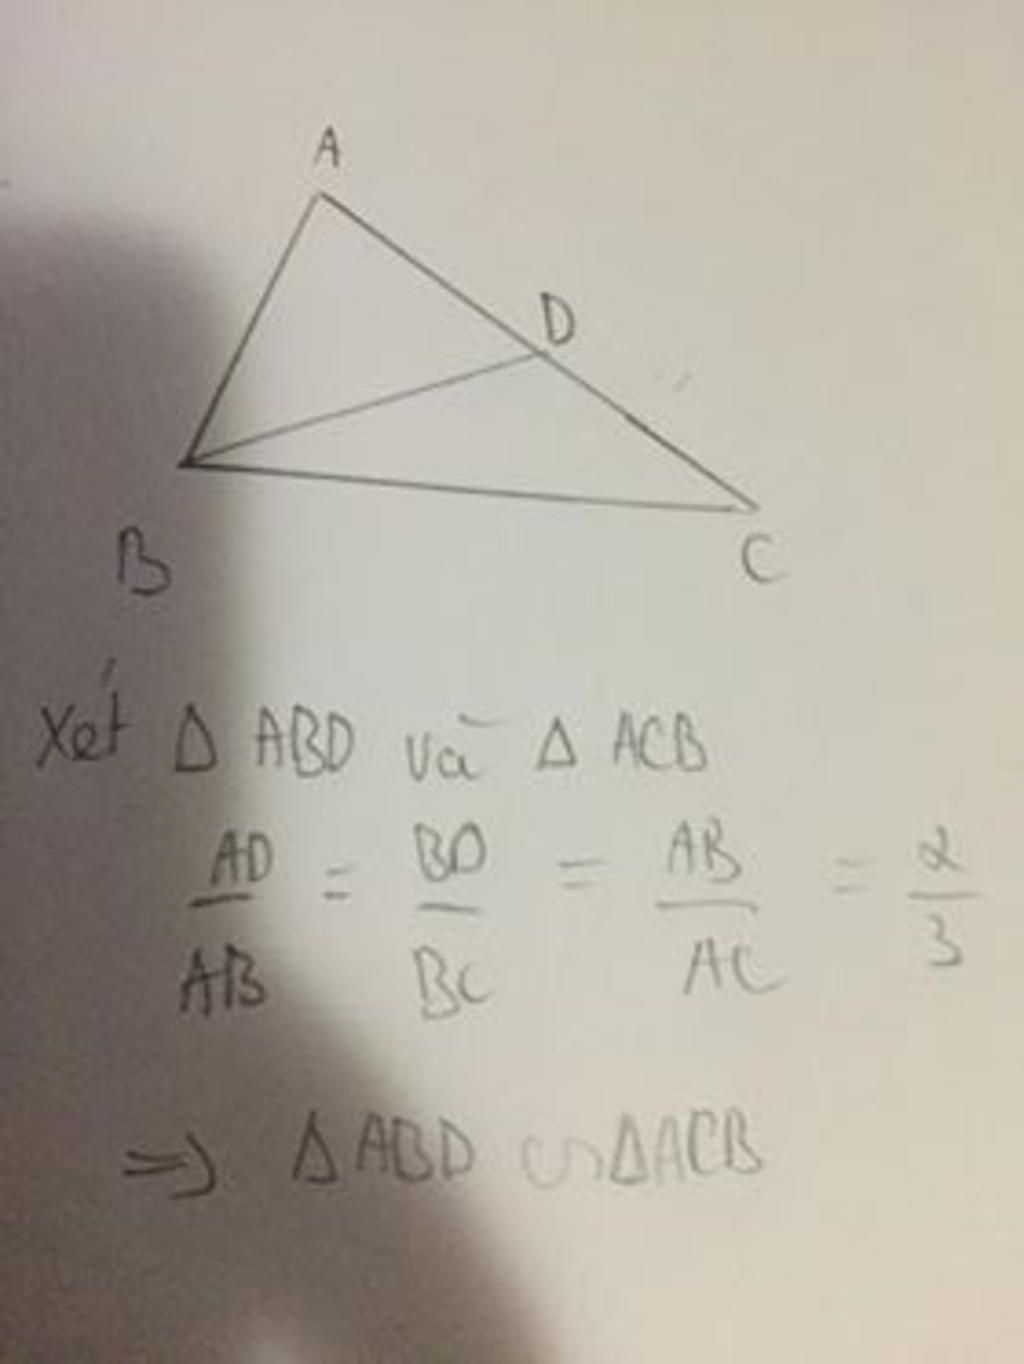 A
D
B
C
Xét Δ ABD và Δ ACB
AD/AB = BD/BC = AB/AC = 2/3
=> Δ ABD ∽ ΔACB